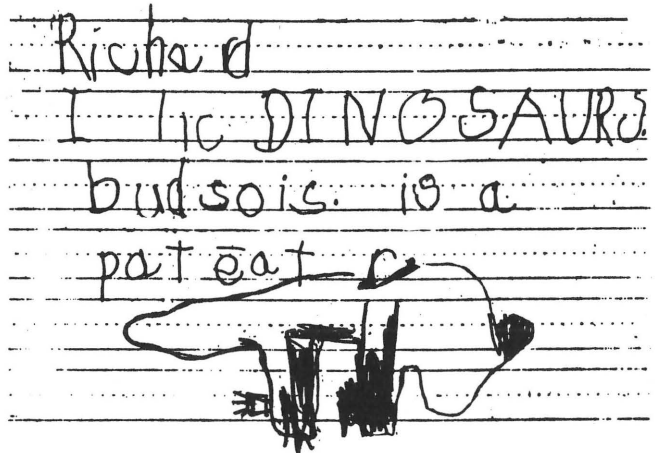 Richard
I lic DINOSAURS.
budsois. is a
pat ēat r